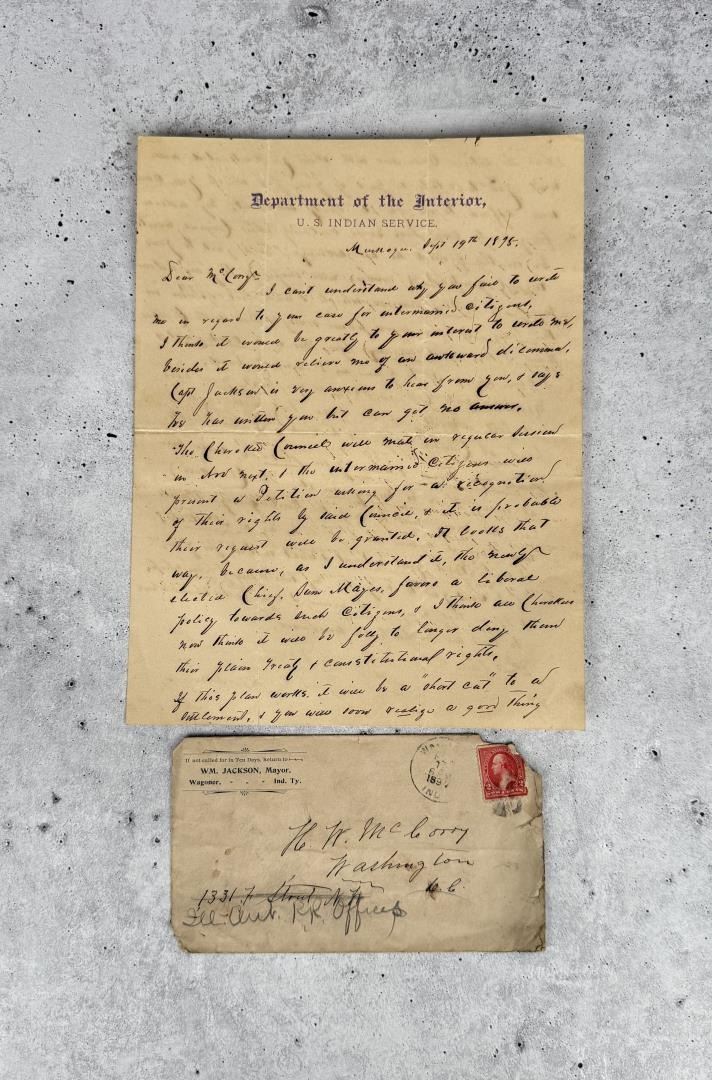 Department of the Interior,
U. S. INDIAN SERVICE.
Muskogee. Sept 19th 1895.
Dear McCorry
I cant understand why you fail to write
me in regard to your case for intermarried citizens,
I think it would be greatly to your interest to write me,
besides it would relieve me of an awkward dilemma.
Capt Jackson is very anxious to hear from you, & says
he has written you but can get no answer.
The Cherokee Council will meet in regular session
in Nov next, & the intermarried Citizens will
present a Petition asking for a recognition
of their rights by said Council, & it is probable
their request will be granted, it looks that
way, because, as I understand it, the newly
elected Chief, Sam Mayes, favors a liberal
policy towards such Citizens, & I think all Cherokees
now think it will be folly to longer deny them
their plain treaty & constitutional rights,
If this plan works it will be a "short cut" to a
settlement, & you will soon realize a good thing
If not called for in Ten Days, Return to
WM. JACKSON, Mayor,
Wagoner, - - - Ind. Ty.
189
IND
2 2
H. W. McCorry
Washington
D. C.
1331 F Street N W
R.R. Offices